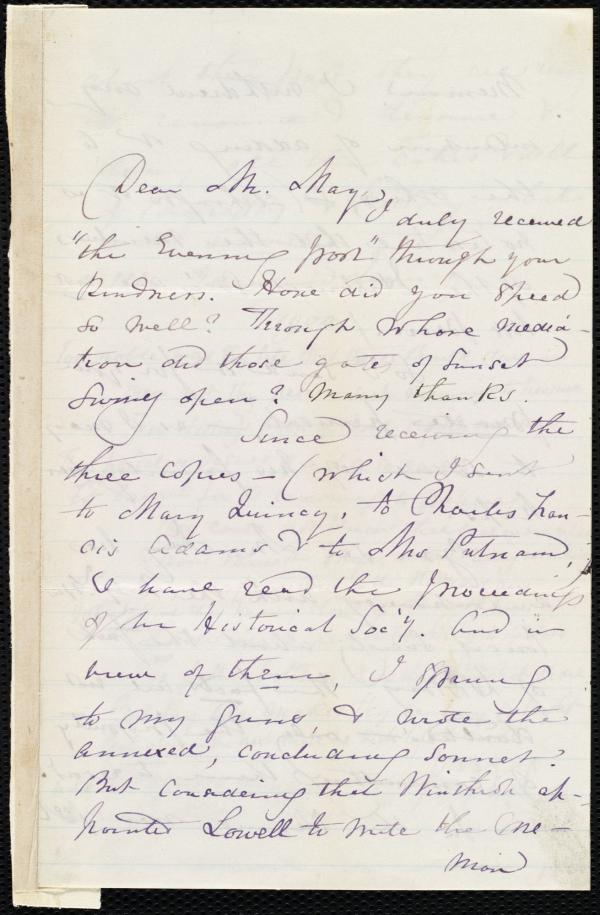 Dear Mr. May,
I duly received
"the Evening Post" through your
kindness. How did you speed
so well? Through whose media-
tion did those gates of sunset
swing open? Many thanks.
Since receiving the
three copies — (which I sent
to Mary Quincy, to Charles Fran-
cis Adams & to Mrs Putnam,
I have read the Proceedings
of the Historical Soc'y. And in
view of them, I sprung
to my guns, & wrote the
annexed, concluding sonnet.
But considering that Winthrop ap-
pointed Lowell to write the Me-
moir